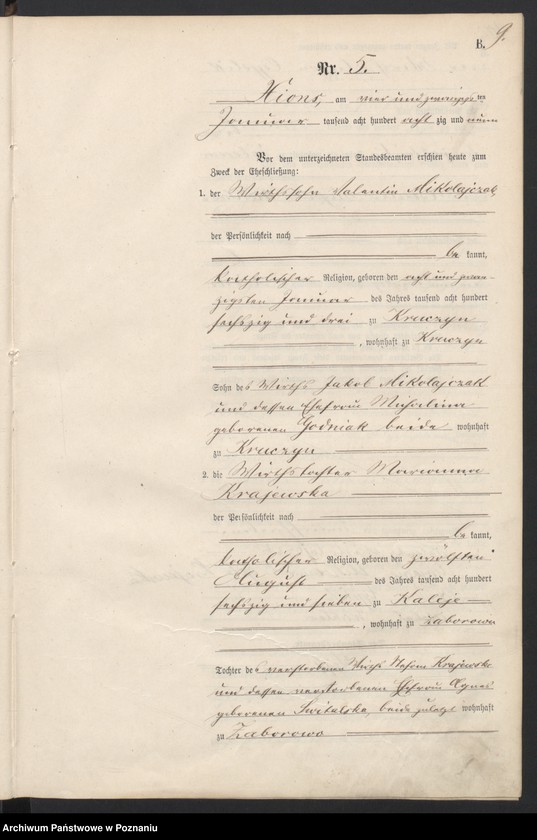 B. 9.
Nr. 5.
Xions, am vier und zwanzigsten
Januar tausend acht hundert acht zig und neun
Vor dem unterzeichneten Standesbeamten erschien heute zum
Zweck der Eheschließung:
1. der Wirthssohn Valentin Mikolajczak
der Persönlichkeit nach
be kannt,
katholischer Religion, geboren den acht und zwan-
zigsten Januar des Jahres tausend acht hundert
sechszig und drei zu Kruczyn
, wohnhaft zu Kruczyn
Sohn des Wirths Jakob Mikolajczak
und dessen Ehefrau Michalina
geborenen Godniak beide wohnhaft
zu Kruczyn
2. die Wirthstochter Marianna
Krajewska
der Persönlichkeit nach
be kannt,
katholischer Religion, geboren den zwölften
August des Jahres tausend acht hundert
sechszig und sieben zu Kaleje
, wohnhaft zu Zaborowo
Tochter des verstorbenen Wirths Krajewski
und dessen verstorbenen Ehefrau Agnes
geborenen Switalska, beide zuletzt wohnhaft
zu Zaborowo
Archiwum Państwowe w Poznaniu